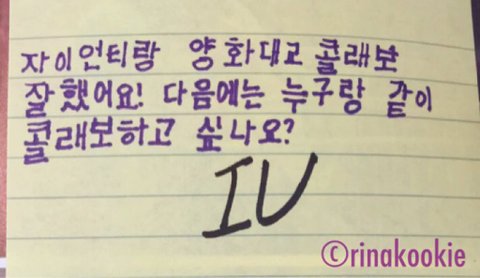 자이언티랑 양화대교 콜래보
잘했어요! 다음에는 누구랑 같이
콜래보하고 싶나요?
IU
©rinakookie